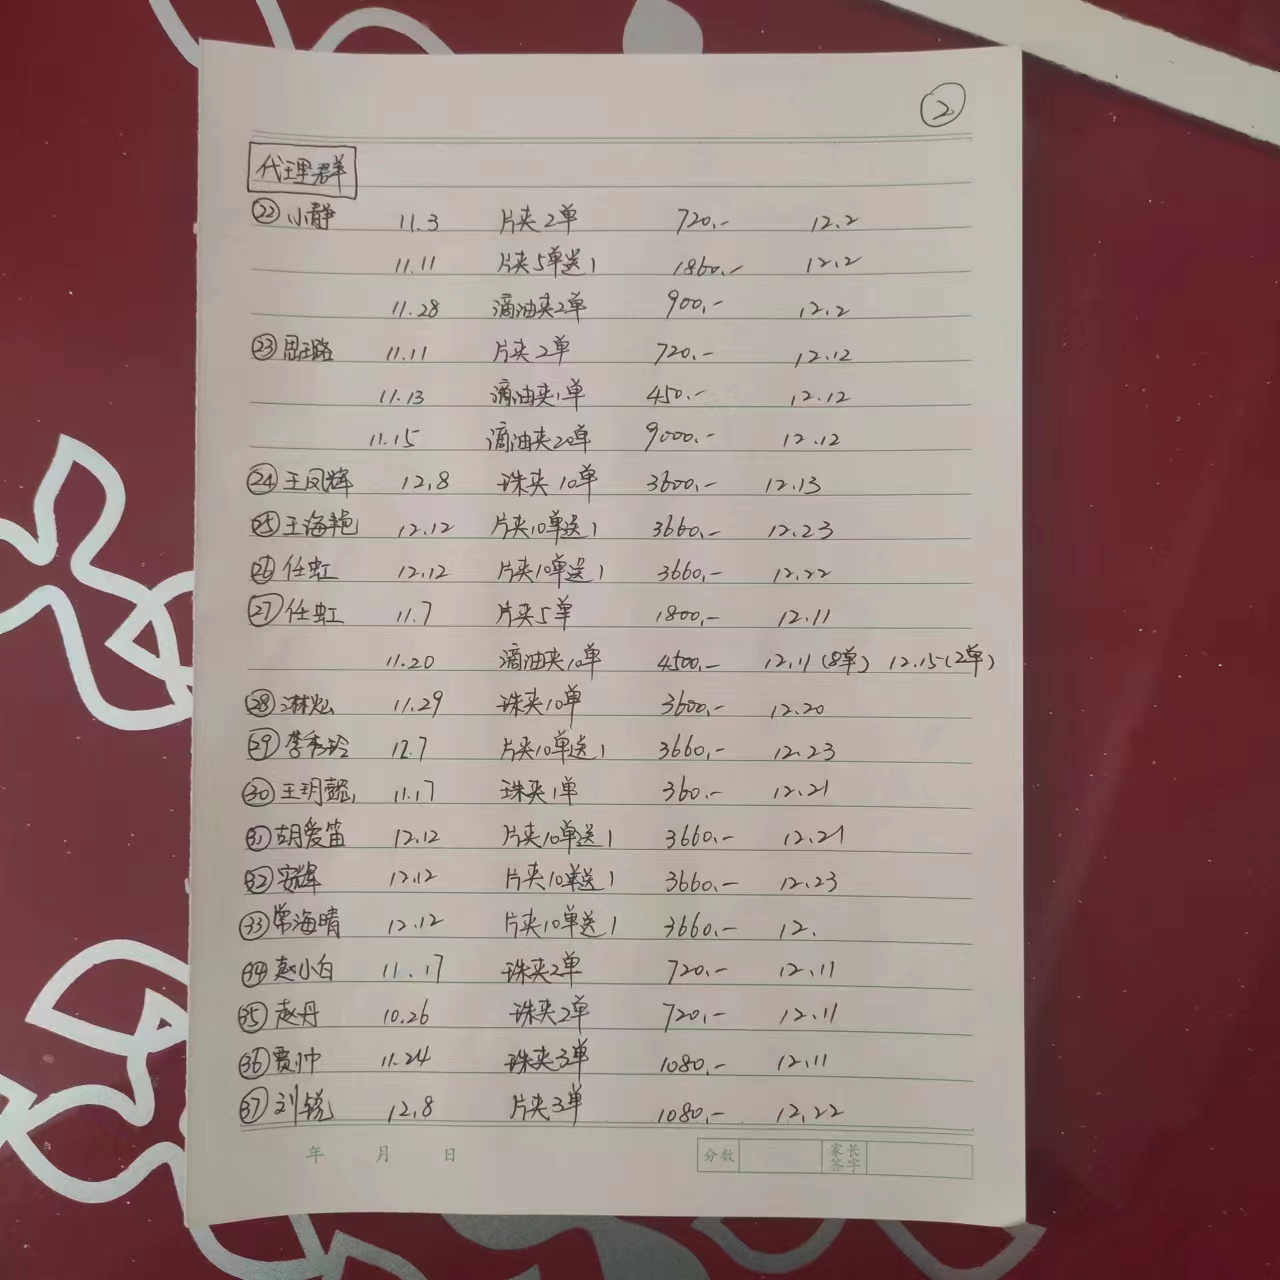 ②
代理群
㉒小静 11.3 片夹2单 720.- 12.2
11.11 片夹5单送1 1860.- 12.2
11.28 滴油夹2单 900.- 12.2
㉓思璐 11.11 片夹2单 720.- 12.12
11.13 滴油夹1单 450.- 12.12
11.15 滴油夹20单 9000.- 12.12
㉔王凤辉 12.8 珠夹10单 3600.- 12.13
㉕王海艳 12.12 片夹10单送1 3660.- 12.23
㉖任虹 12.12 片夹10单送1 3660.- 12.22
㉗任虹 11.7 片夹5单 1800.- 12.11
11.20 滴油夹10单 4500.- 12.11(8单) 12.15(2单)
㉘淋灿 11.29 珠夹10单 3600.- 12.20
㉙李秀玲 12.7 片夹10单送1 3660.- 12.23
㉚王玥懿 11.17 珠夹1单 360.- 12.21
㉛胡爱笛 12.12 片夹10单送1 3660.- 12.21
㉜安辉 12.12 片夹10单送1 3660.- 12.23
㉝常海晴 12.12 片夹10单送1 3660.- 12.
㉞赵小白 11.17 珠夹2单 720.- 12.11
㉟赵丹 10.26 珠夹2单 720.- 12.11
㊱贾帅 11.24 珠夹3单 1080.- 12.11
㊲刘锐 12.8 片夹3单 1080.- 12.22
年 月 日 分数 家长签字